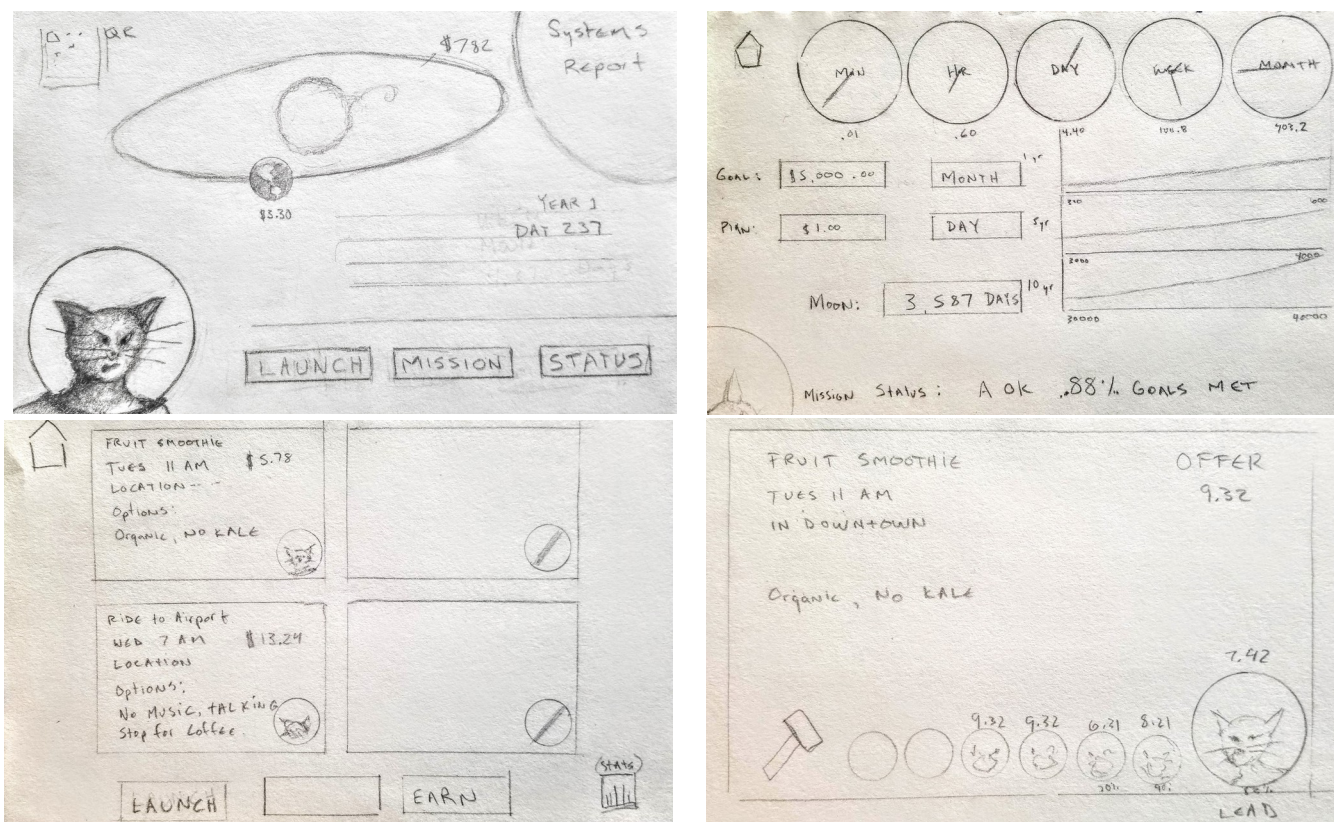 QR
$782
Systems
Report
$3.30
YEAR 1
DAY 237
LAUNCH
MISSION
STATUS
MIN
HR
DAY
WEEK
MONTH
.01
.60
4.40
100.8
403.2
GOAL:
$5,000.00
MONTH
1 yr
PLAN:
$1.00
DAY
5yr
600
3000
4000
MOON:
3,587 DAYS
10 yr
30000
40000
MISSION STATUS: A OK .88% GOALS MET
FRUIT SMOOTHIE
TUES 11 AM $5.78
LOCATION---
Options:
Organic, NO KALE
RIDE to Airport
WED 7 AM $13.24
LOCATION
Options:
No MUSIC, TALKING
Stop for Coffee
LAUNCH
EARN
(STATS)
FRUIT SMOOTHIE
OFFER
TUES 11 AM
9.32
IN DOWNTOWN
Organic, No KALE
7.42
9.32
9.32
6.21
8.21
70%
90%
LEAD